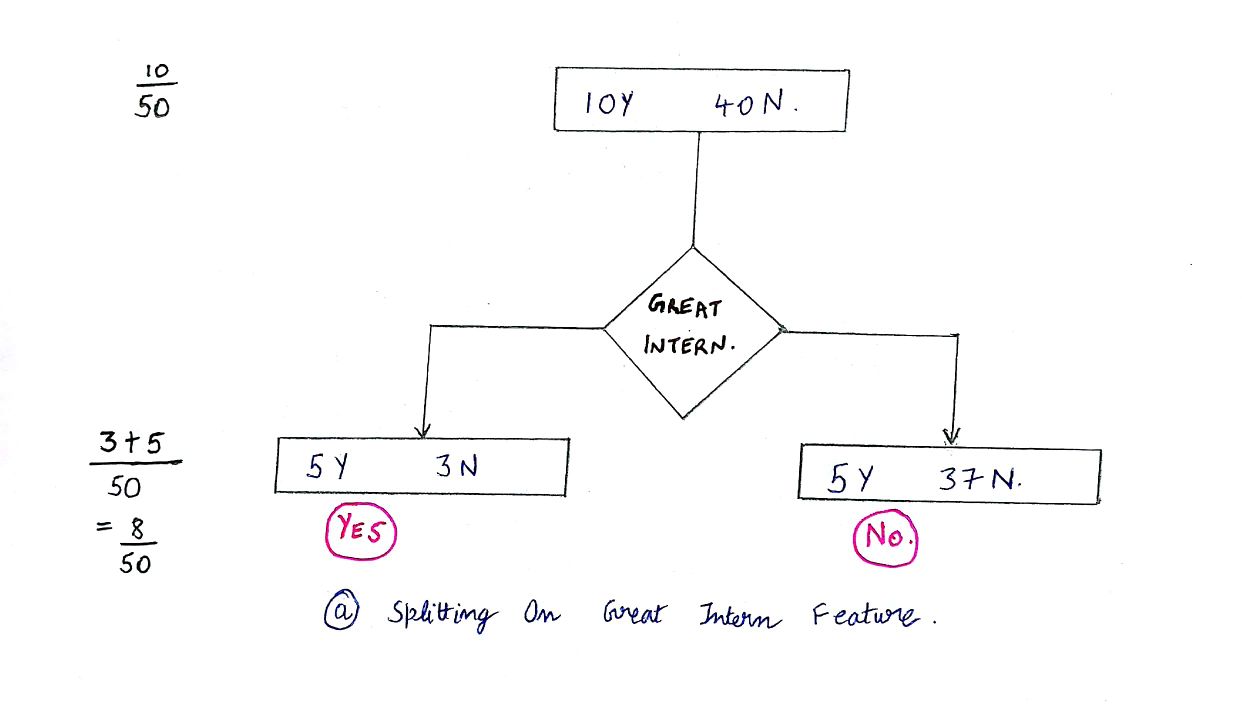 10
50
10Y 40N.
GREAT
INTERN.
3+5
50
= 8
50
5Y 3N
5Y 37N.
YES
No.
a Splitting On Great Intern Feature.